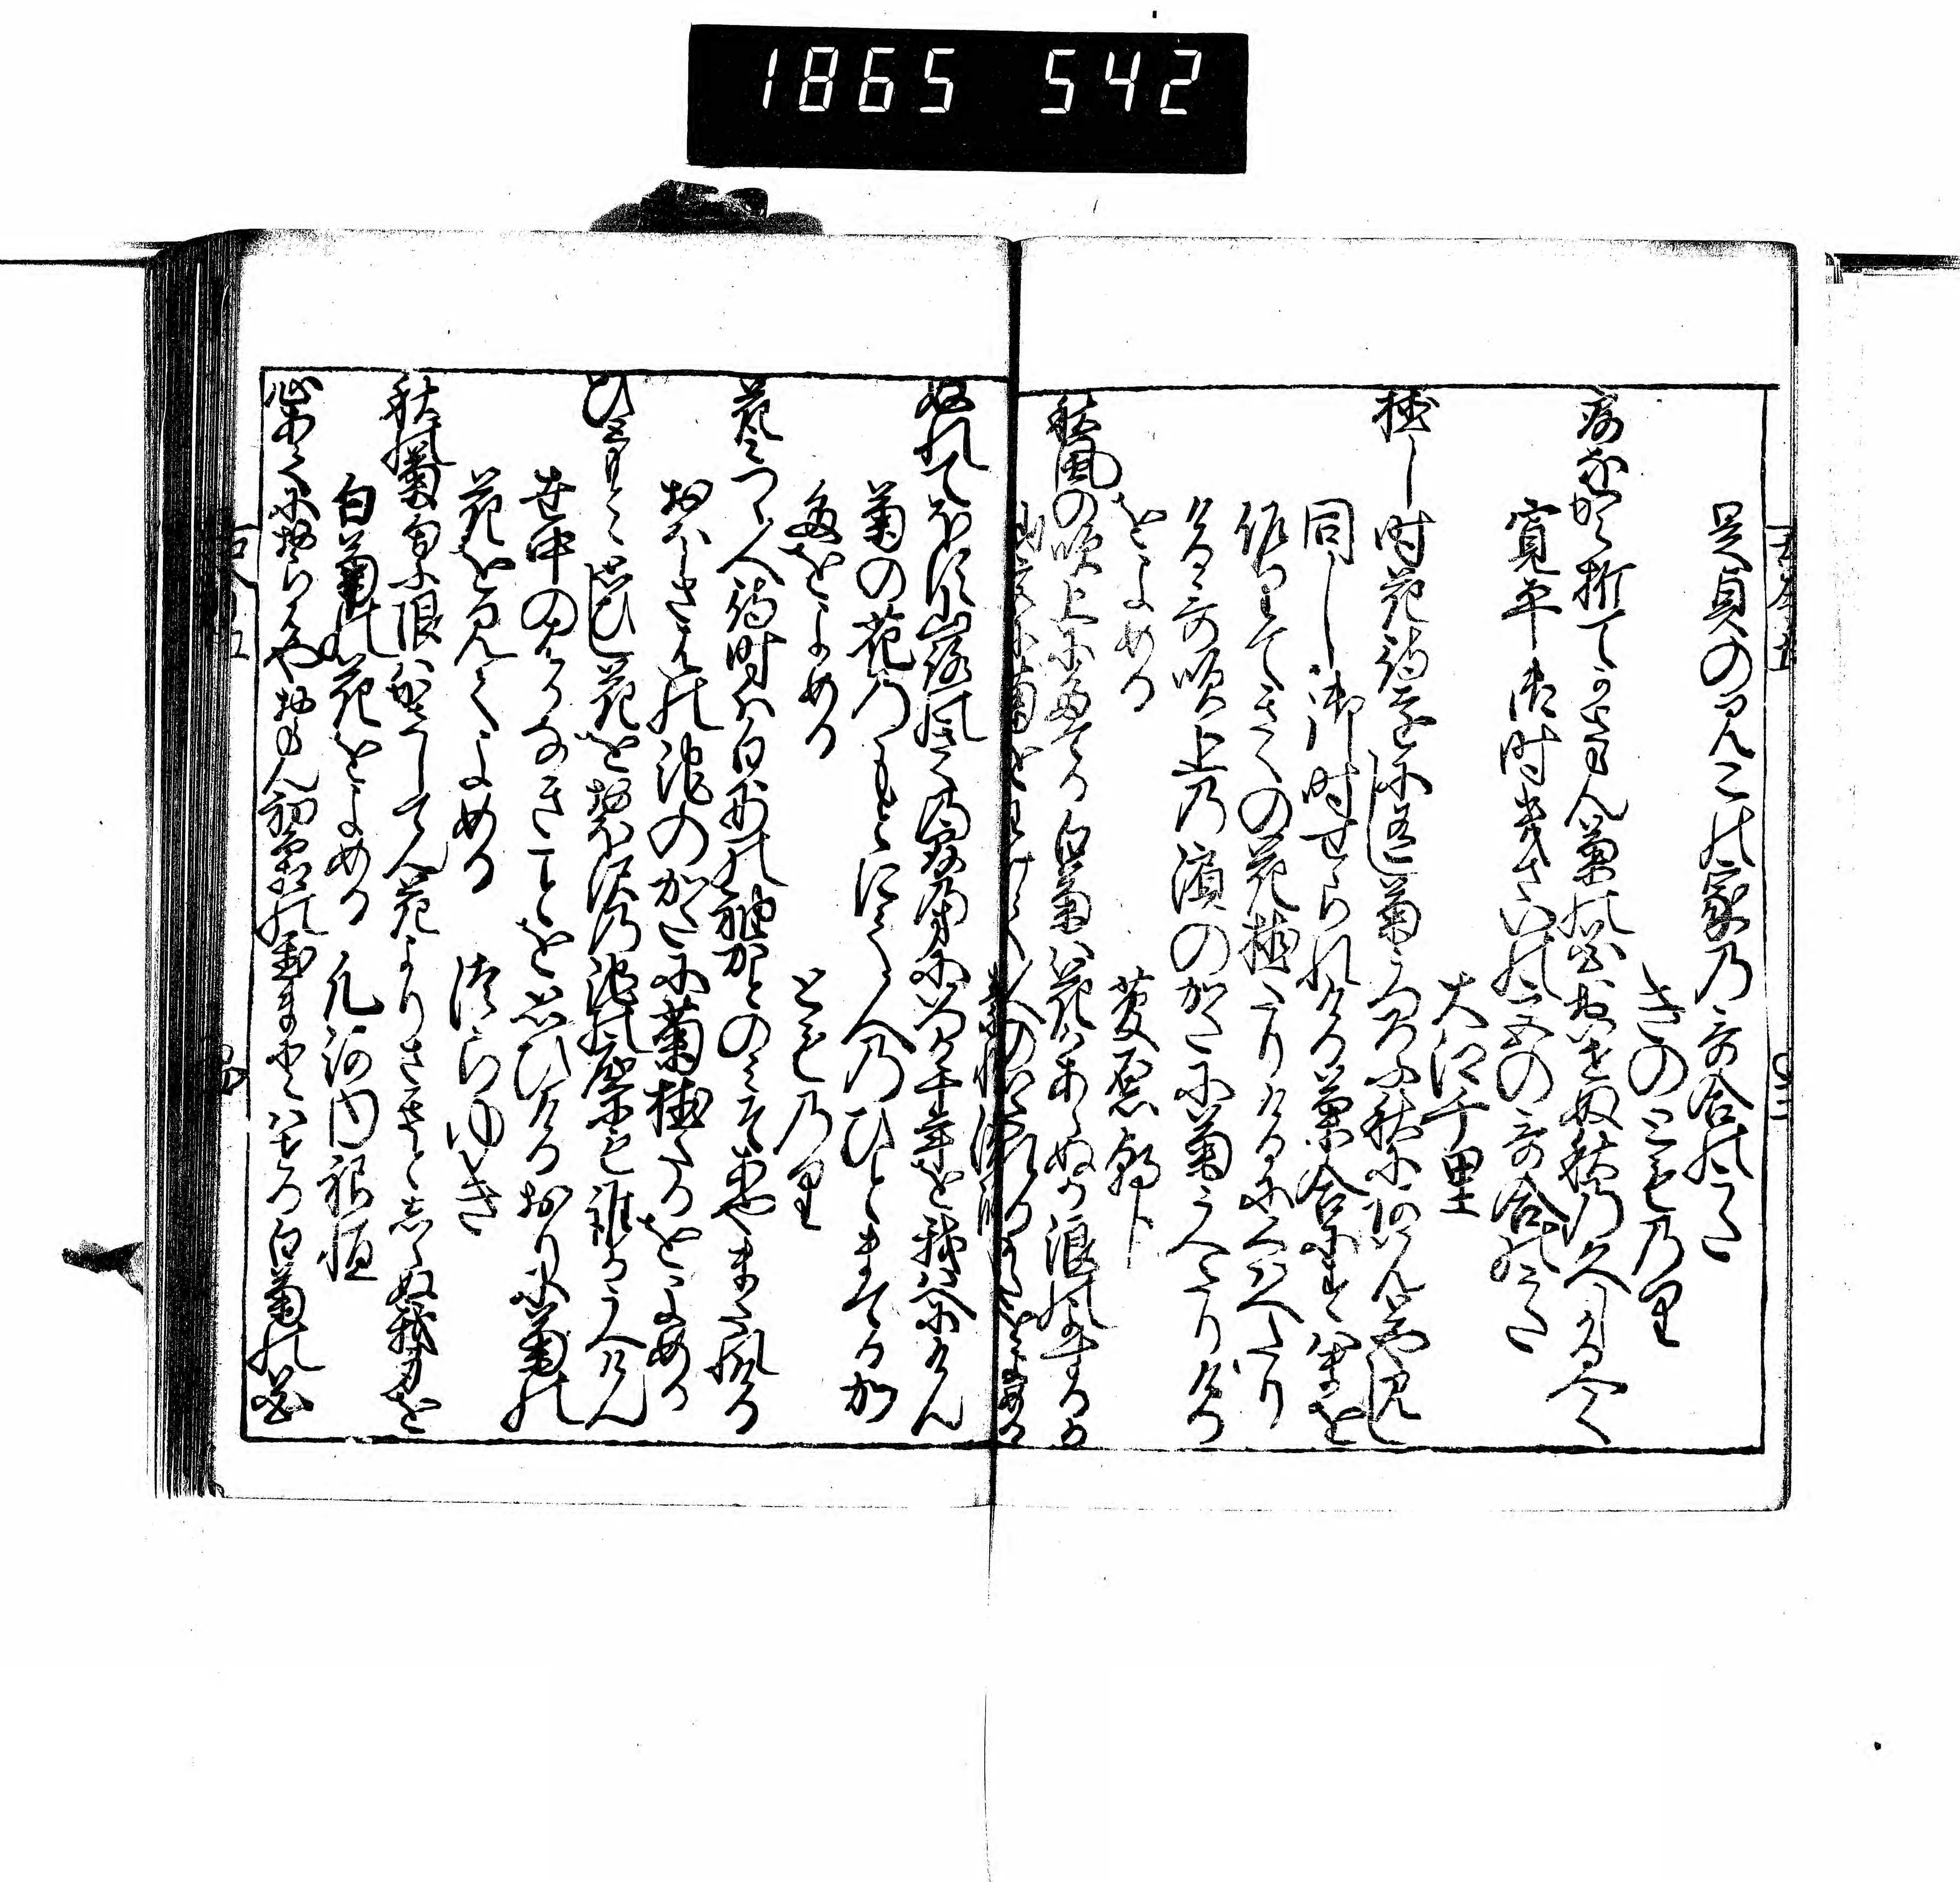 1865 542
是貞のみこの家乃哥合のうた
きのとも乃里
露なから折てかさゝん菊の花おいせぬ秋乃久しかるへく
寛平御時きさいの宮の哥合のうた
大江千里
植し時花待遠に有し菊うつろふ秋にあはんとやみし
同し御時せられける菊合にすはまを
作りてきくの花植たりけるにくはへたり
ける哥吹上乃濱のかたに菊うへたりける
をよめる
菅原朝臣
秋風の吹上にたてる白菊は花かあらぬか浪のよするか
仙宮に菊をわけて人のいたれるかたをよめる
素性法師
ぬれてほす山路の菊の露のまにいつか千年を我はへにけん
菊の花乃もとにて人乃ひとまてるか
たをよめる
とも乃里
花見つゝ人待時は白妙の袖かとのみそあやまたれける
おほさはの池のかたに菊植たるをよめる
ひともとゝ思ひし花を大沢乃池の底にも誰かうへけん
世中のはかなきことを思ひけるおりに菊の
花をみてよめる
つらゆき
秋の菊匂ふ限はかさしてん花よりさきとしらぬ我身を
白菊の花をよめる
凡河内躬恒
心あてに折らはや折らん初霜の置まとはせる白菊の花